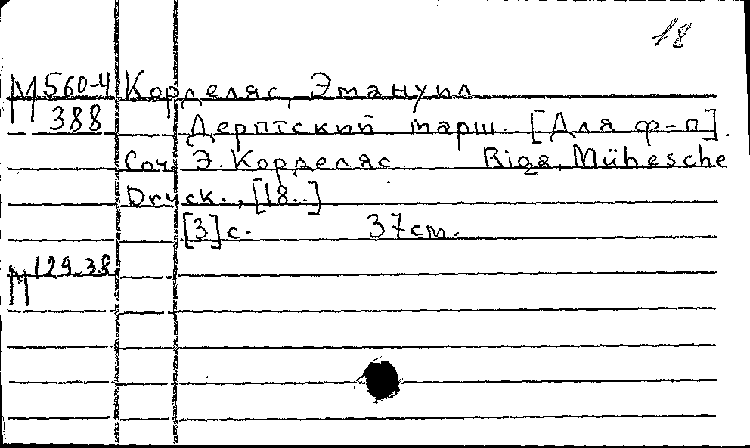 18
М 560-4 Корделяс, Эмануил
388 Дерптский марш. [Для ф-п].
Соч. Э. Корделяс Riga, Mühesche
Druck., [18..]
[3] с. 37 см.
М 129-38